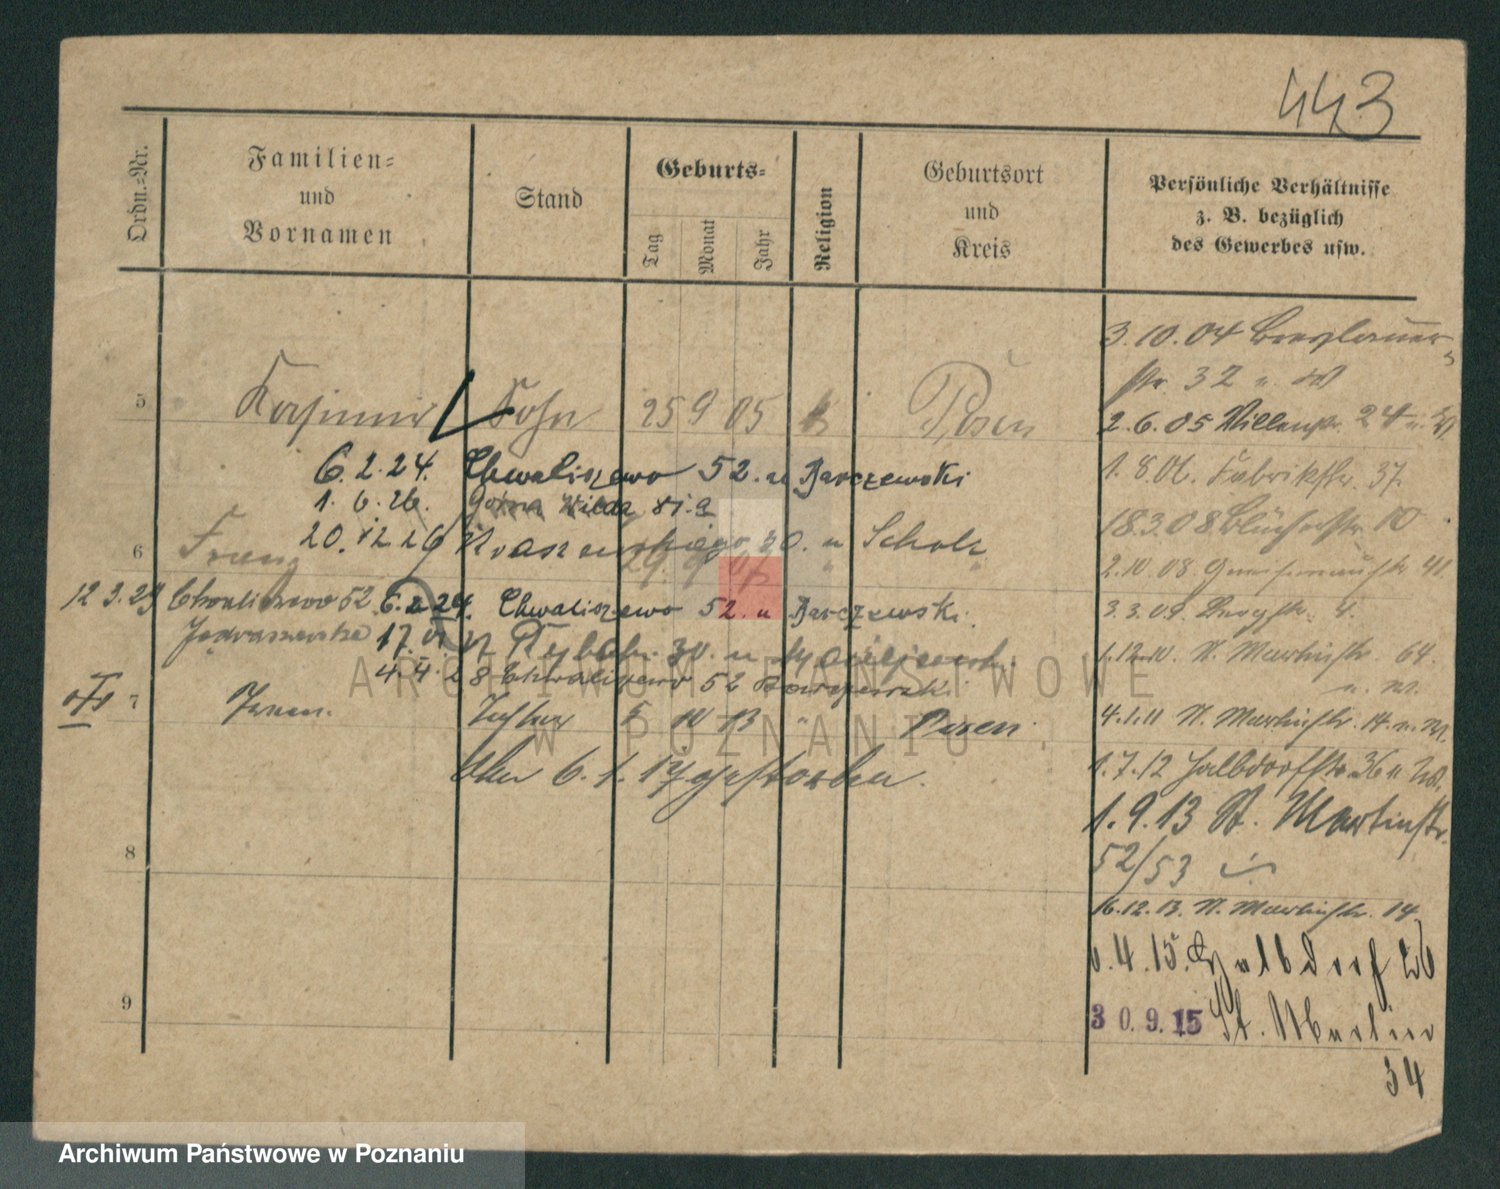 443
Ordn.-Nr.
Familien-
und
Vornamen
Stand
Geburts-
Tag
Monat
Jahr
Religion
Geburtsort
und
Kreis
Persönliche Verhältnisse
z. B. bezüglich
des Gewerbes usw.
5 Kasimir Sohn 25 9 05 k Posen
6.2.24. Chwaliszewo 52. u Barczewski
1. 6. 26. Górna Wilda
20. 12. 26 Kraszewskiego 30. u Scholz
6 Franz 29. 9 07 " "
12 3. 29 Chwaliszewo 52 6. 2 24. Chwaliszewo 52. u Barczewski.
17. VI 27 Rybaki. 30. u
4. 4. 28 Chwaliszewo 52
7 Tochter 5 10 13 " Posen
6. 1. 17 gestorben.
8
9
3. 10. 04 Breslauer-
str. 32 u. W
2. 6. 05 24 u. W
1. 8. 06. Fabrikstr. 37.
18 3. 08 Blücherstr. 10
2. 10. 08 Gneisenaustr 41
3. 3. 09. 4.
1. 12. 10. St. Martinstr. 64.
u. W.
4. 1. 11 St. Martinstr. 14 u. W.
1. 7. 12 Halbdorfstr 36 u W.
1. 9. 13 St. Martinstr.
52/53
16. 12. 13. St. Martinstr. 14
4. 15. Halbdorf 26
30. 9. 15 St. Martin
34
ARCHIWUM PAŃSTWOWE
W POZNANIU
Archiwum Państwowe w Poznaniu